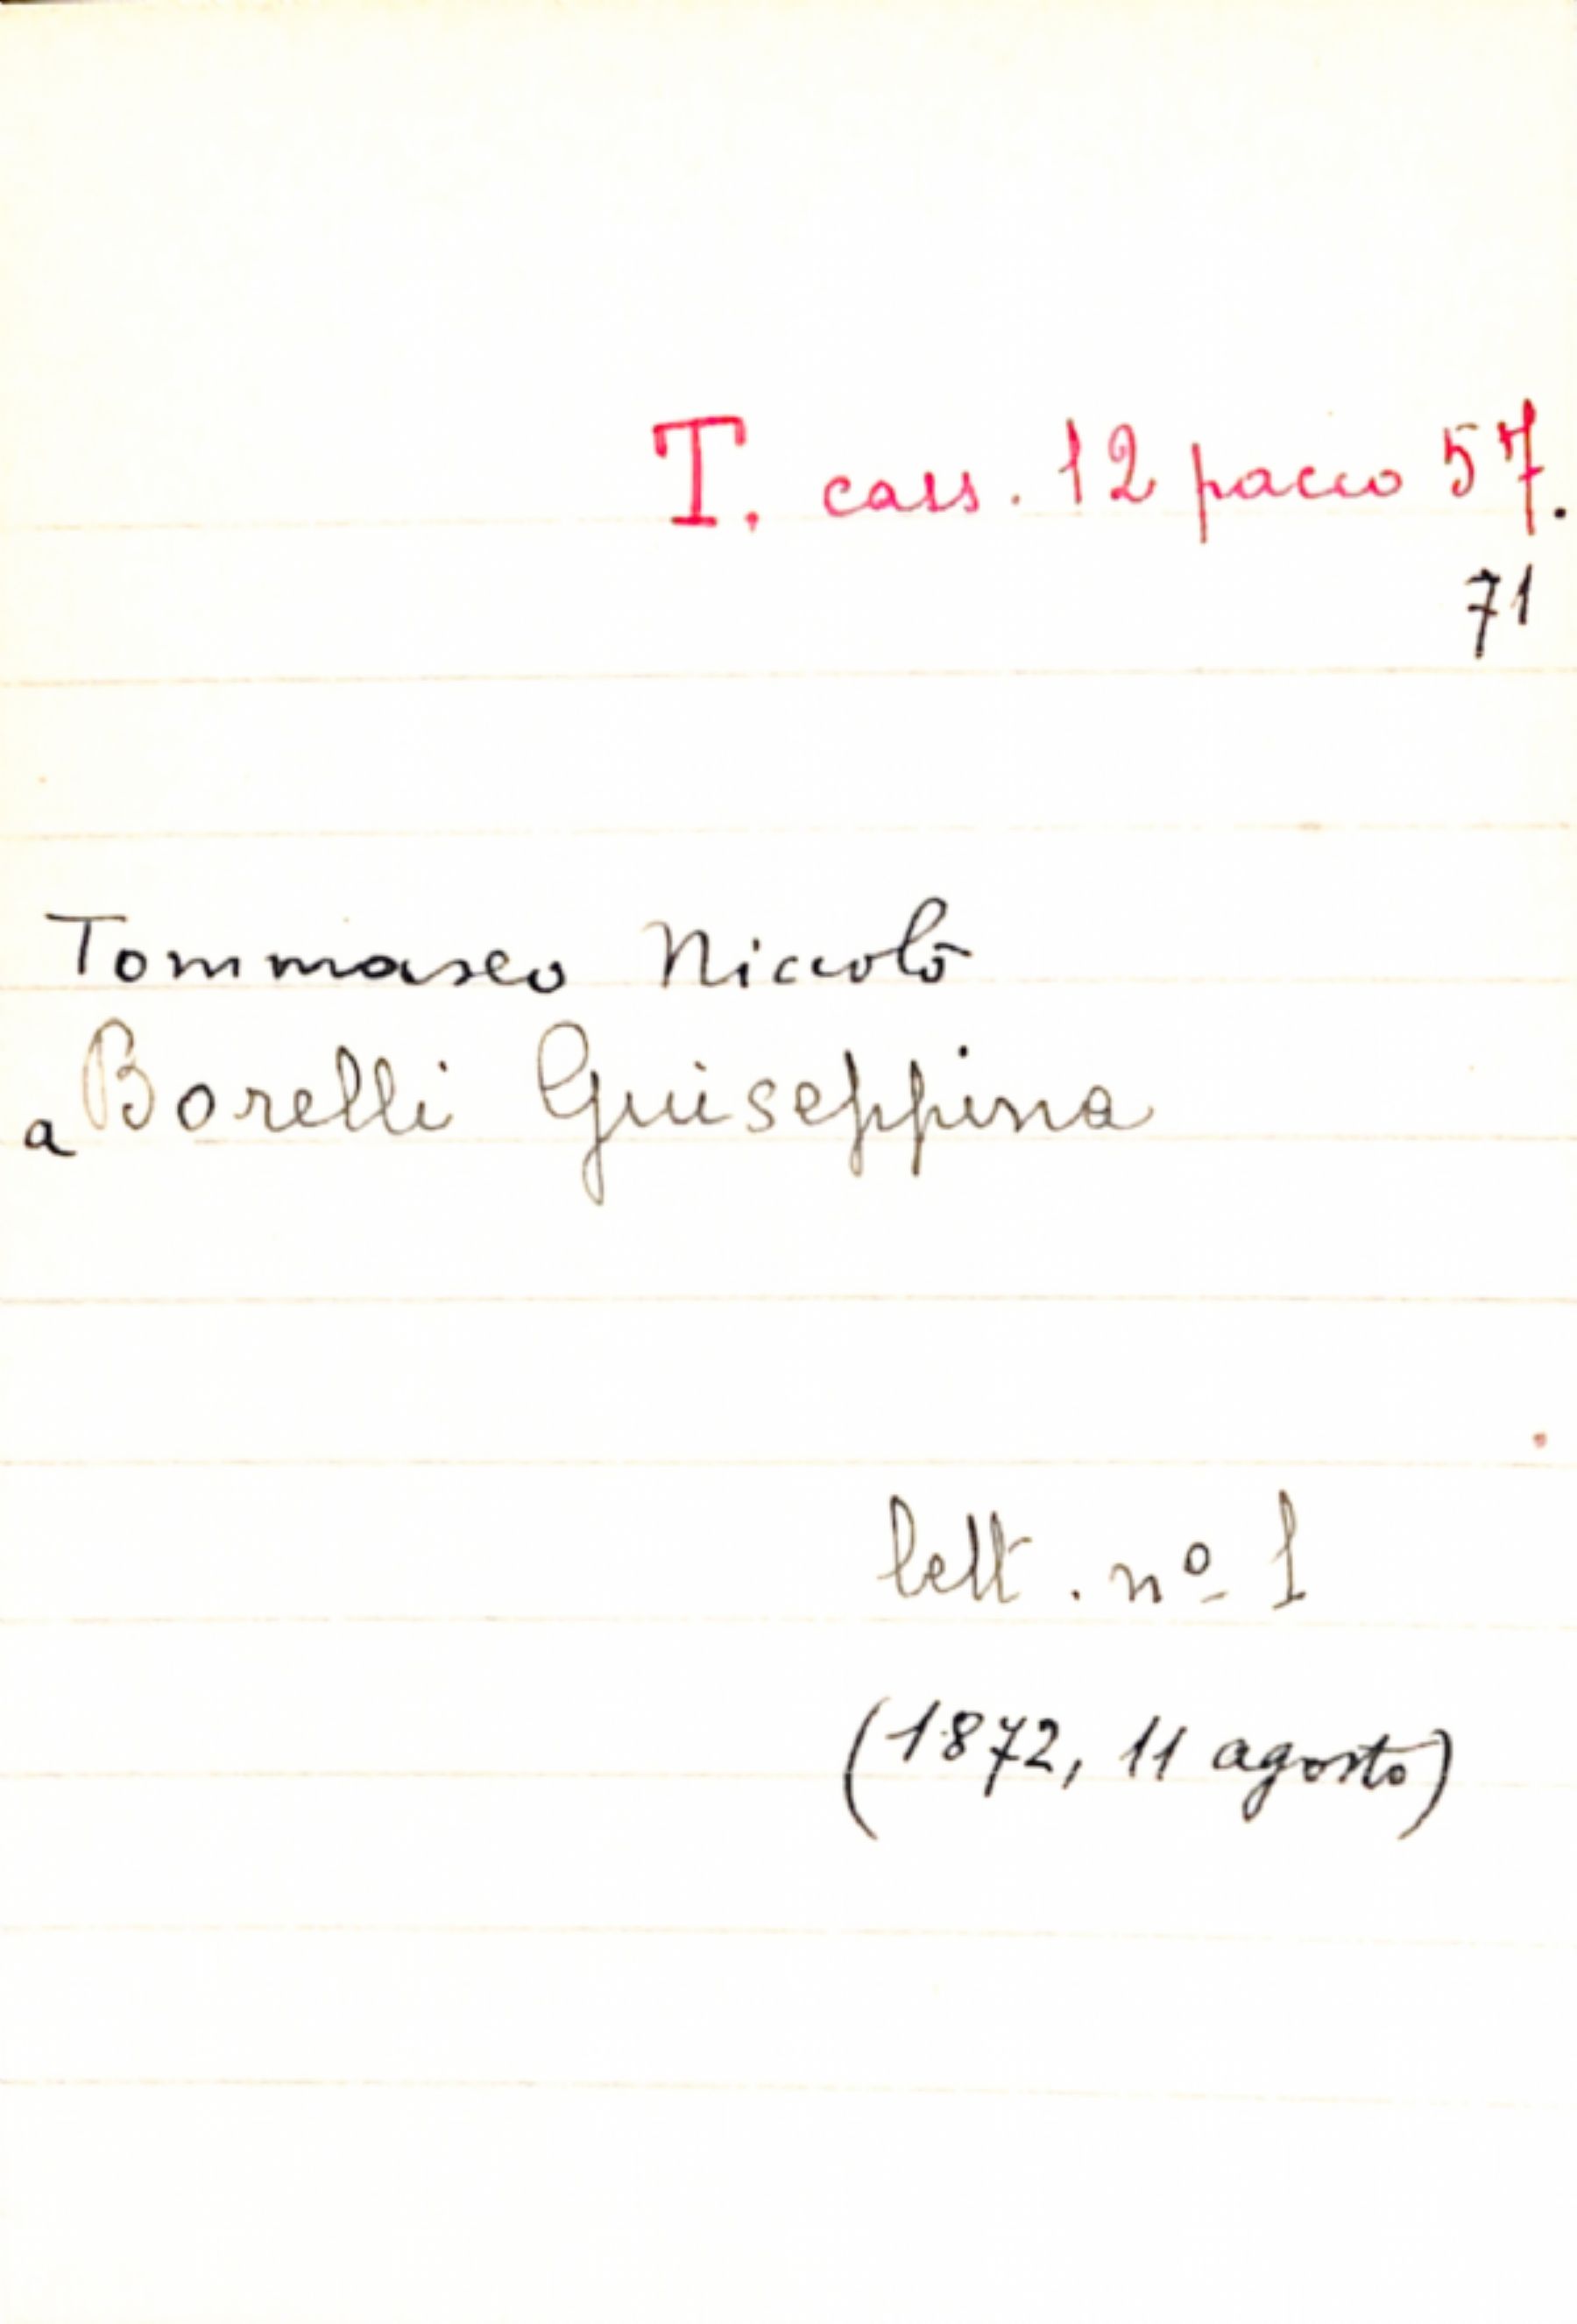 T. cass. 12 pacco 57.
71
Tommaseo Niccolò
a Borelli Giuseppina
lett. nº 1
(1872, 11 agosto)